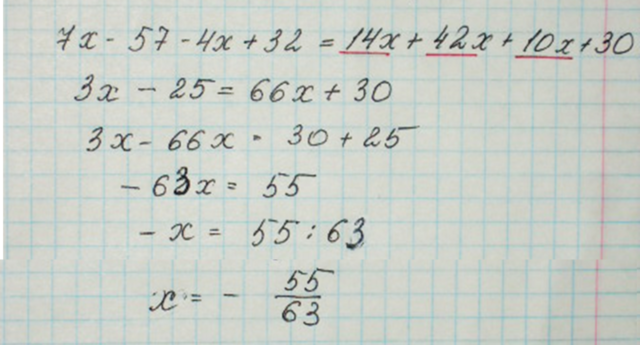 7x - 57 - 4x + 32 = 14x + 42x + 10x + 30
3x - 25 = 66x + 30
3x - 66x = 30 + 25
- 63x = 55
- x = 55 : 63
x = - 55/63